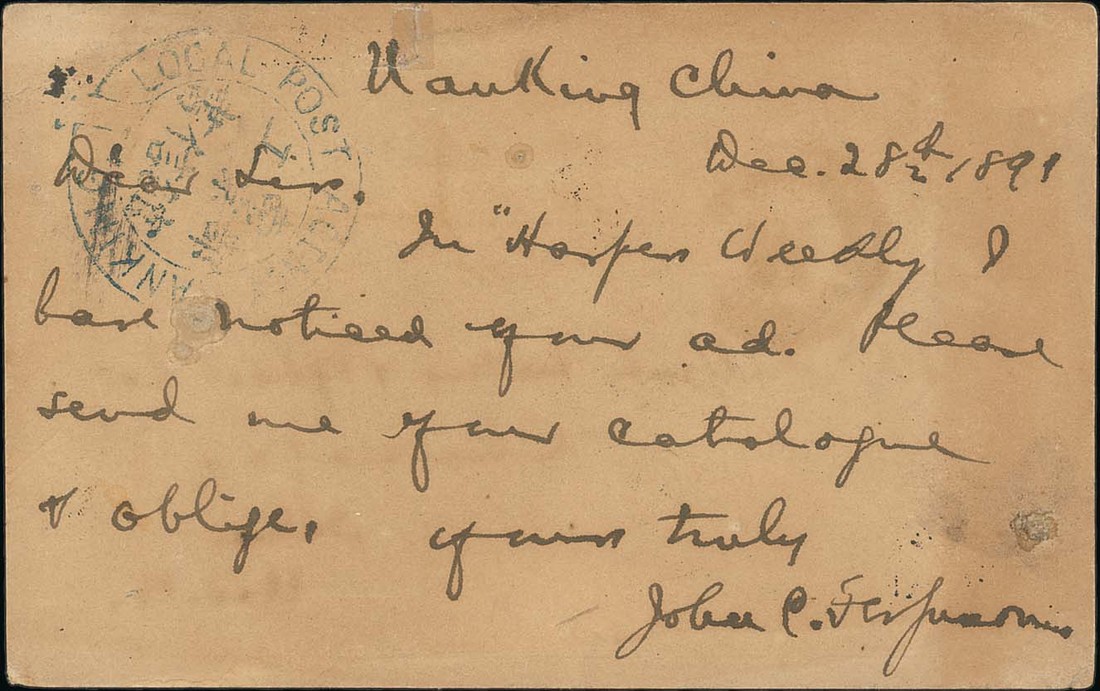 LOCAL POST
Nanking China
Dec. 28th, 1891
Dear Sir,
In "Harpers Weekly I
have noticed your ad. Please
send me your catalogue
& oblige,
yours truly
John C. Ferguson